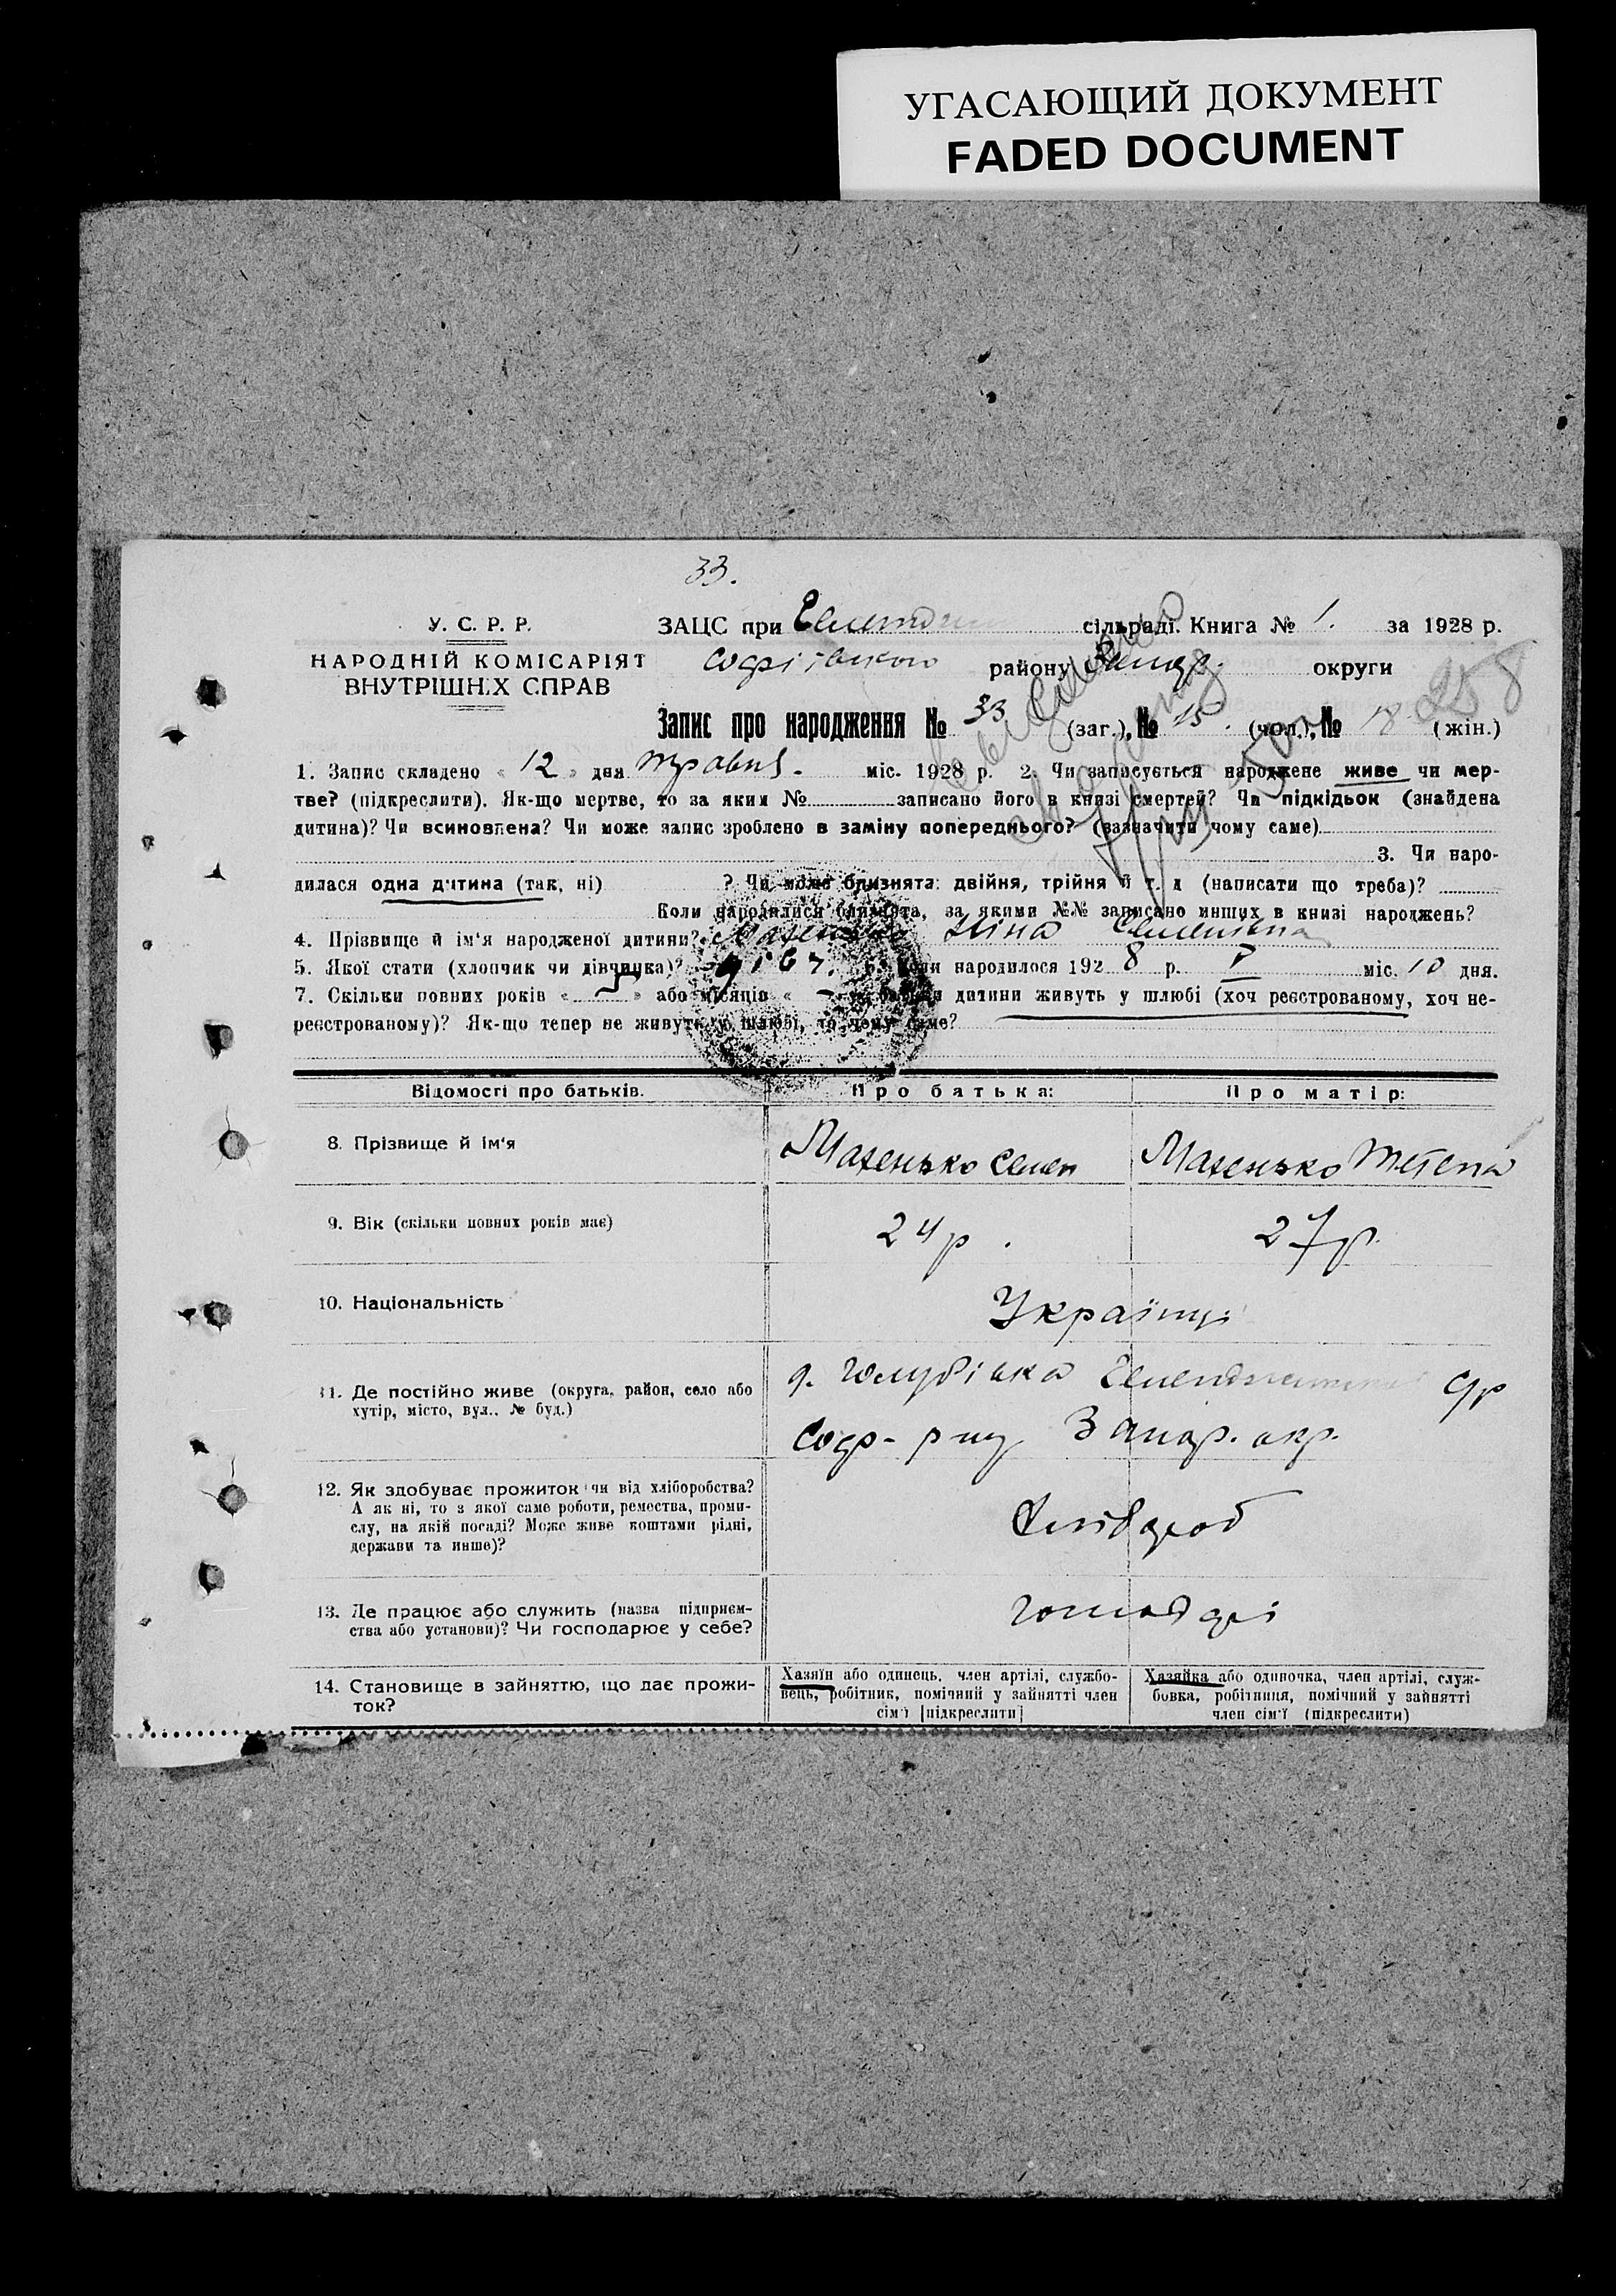 УГАСАЮЩИЙ ДОКУМЕНТ
FADED DOCUMENT
33.
У. С. Р. Р.
НАРОДНІЙ КОМІСАРІЯТ
ВНУТРІШНІХ СПРАВ
ЗАЦС при сільраді. Книга № 1. за 1928 р.
району Запор. округи
258
Запис про народження № 33 (заг.), № 15. (чол.), № 18 (жін.)
1. Запис складено « 12 » дня травня. міс. 1928 р. 2. Чи записується народжене живе чи мер-
тве? (підкреслити). Як-що мертве, то за яким № записано його в книзі смертей? Чи підкідьок (знайдена
дитина)? Чи всиновлена? Чи може запис зроблено в заміну попереднього? (зазначити чому саме)
3. Чи наро-
дилася одна дитина (так, ні) ? Чи може близнята: двійня, трійня й т. д (написати що треба)?
Коли народилися близнята, за якими №№ записано инших в книзі народжень?
4. Прізвище й ім'я народженої дитини? Мазенько Ніна Семенівна
5. Якої стати (хлопчик чи дівчинка)? дівч. 6. Коли народилося 1928 р. V міс. 10 дня.
7. Скільки повних років « — » або місяців « — батьки дитини живуть у шлюбі (хоч реєстрованому, хоч не-
реєстрованому)? Як-що тепер не живуть у шлюбі, то чому саме?
Відомості про батьків. Про батька: Про матір:
8. Прізвище й ім'я Мазенько Семен Мазенько Тетена
9. Вік (скільки повних років має) 24 р. 27 р.
10. Національність Українці
11. Де постійно живе (округа, район, село або
хутір, місто, вул., № буд.)
д. Голубівка с/р
Соф- р-ну Запор. окр.
12. Як здобуває прожиток чи від хліборобства?
А як ні, то з якої саме роботи, ремества, проми-
слу, на якій посаді? Може живе коштами рідні,
держави та инше)?
Хлібороб
13. Де працює або служить (назва підприєм-
ства або установи)? Чи господарює у себе?
14. Становище в зайняттю, що дає прожи-
ток?
Хазяїн або одинець, член артілі, службо-
вець, робітник, помічний у зайнятті член
сім'ї [підкреслити]
Хазяйка або одиночка, член артілі, служ-
бовка, робітниця, помічний у зайнятті
член сім'ї (підкреслити)